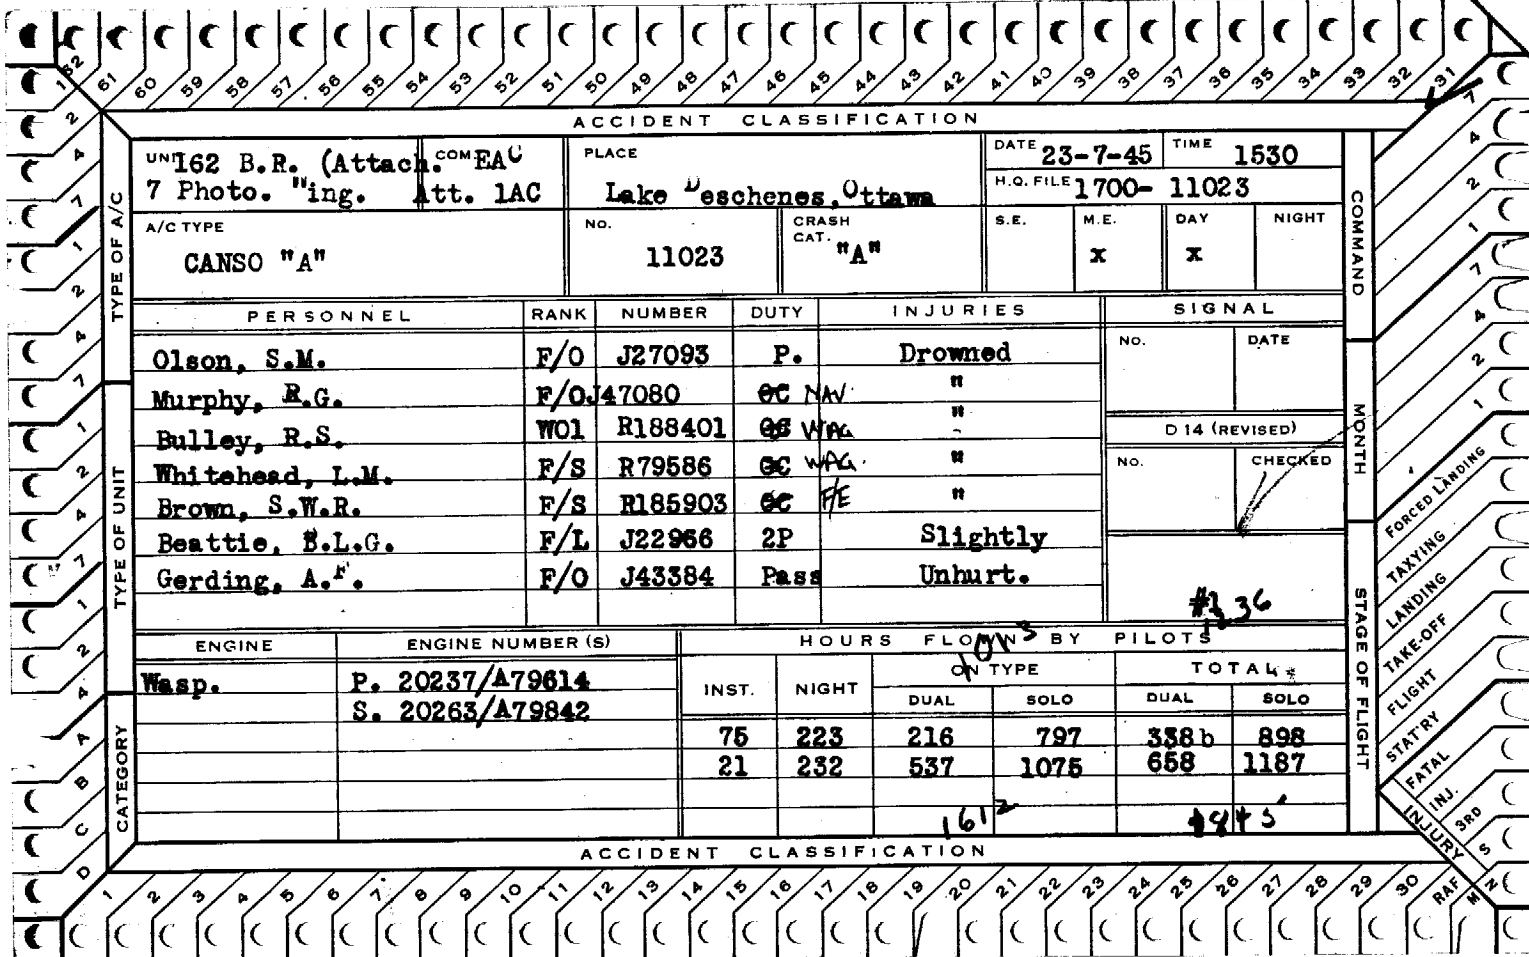 62 61 60 59 58 57 56 55 54 53 52 51 50 49 48 47 46 45 44 43 42 41 40 39 38 37 36 35 34 33 32 31
ACCIDENT CLASSIFICATION
UNIT 162 B.R. (Attach. COM. EAC
7 Photo. Wing. Att. 1AC
PLACE
Lake Deschenes, Ottawa
DATE 23-7-45 TIME 1530
H.Q. FILE 1700- 11023
A/C TYPE
CANSO "A"
NO.
11023
CRASH
CAT. "A"
S.E. M.E. DAY NIGHT
x x
PERSONNEL RANK NUMBER DUTY INJURIES SIGNAL
Olson, S.M. F/O J27093 P. Drowned
Murphy, R.G. F/O J47080 OC NAV. "
Bulley, R.S. WO1 R188401 OC WAG "
Whitehead, L.M. F/S R79586 OC WAG. "
Brown, S.W.R. F/S R185903 OC F/E "
Beattie, B.L.G. F/L J22966 2P Slightly
Gerding, A.F. F/O J43384 Pass Unhurt.
NO. DATE
D 14 (REVISED)
NO. CHECKED
ENGINE ENGINE NUMBER (S) HOURS FLOWN BY PILOTS
Wasp. P. 20237/A79614
S. 20263/A79842
1013
INST. NIGHT ON TYPE TOTAL
DUAL SOLO DUAL SOLO
75 223 216 797 338 b 898
21 232 537 1075 658 1187
1612 1845
ACCIDENT CLASSIFICATION
1 2 3 4 5 6 7 8 9 10 11 12 13 14 15 16 17 18 19 20 21 22 23 24 25 26 27 28 29 30 RAF M N
TYPE OF A/C
TYPE OF UNIT
CATEGORY
1 2 4 7 1 2 4 7 1 2 4 7 1 2 4 A B C D
COMMAND
MONTH
STAGE OF FLIGHT
7 4 2 1 7 4 2 1
FORCED LANDING
TAXYING
LANDING
TAKE-OFF
FLIGHT
STAT'RY
FATAL
INJ.
3RD
S
INJURY